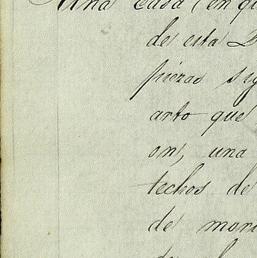 Una Casa (en qu
de esta
piezas sig
arto que
on, una
techos de
de mon